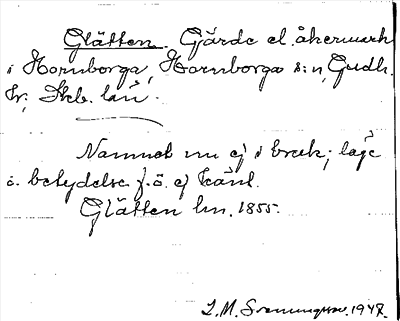 Glätten. Gärde el. åkermark
i Hornborga, Hornborga s:n, Gudh.
hr., Skb. län.
Namnet nu ej i bruk; läge
o. betydelse f. ö. ej känt.
Glätten lm. 1855.
I. M. Svenningsson. 1947.